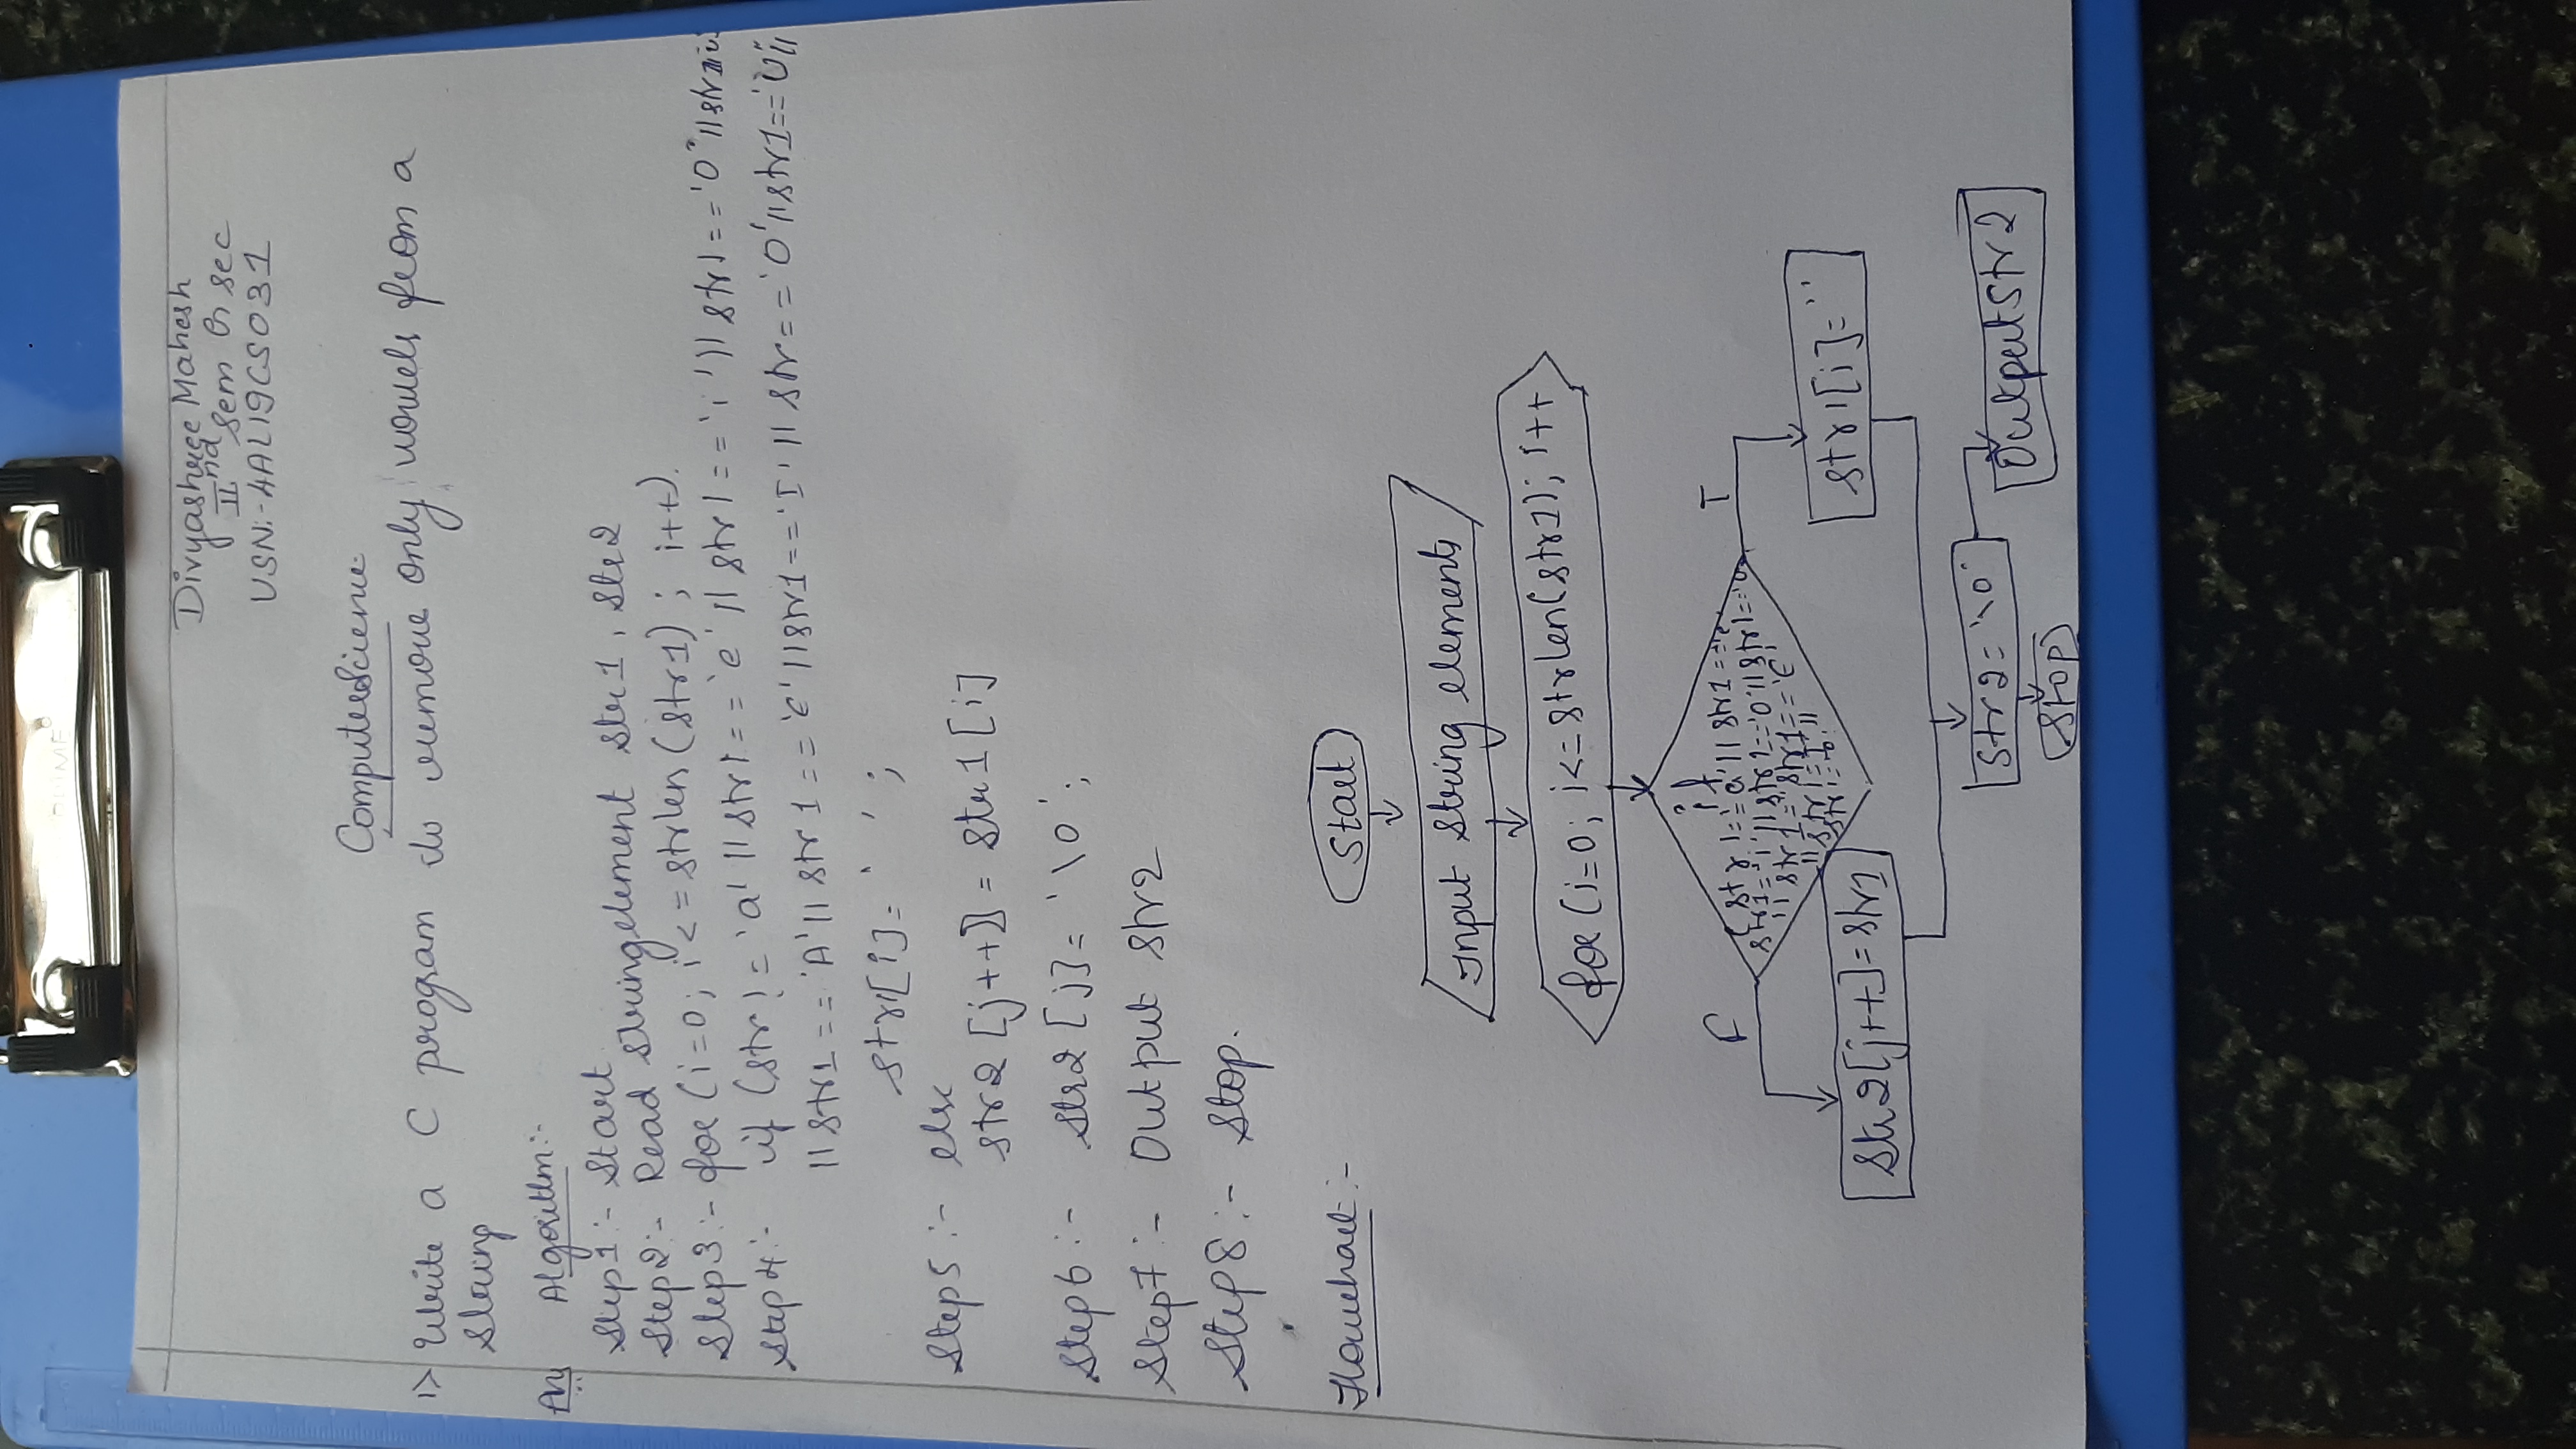 Divyashree Mahesh
IInd Sem G sec
USN:-4AL19CS031
ComputerScience
1> Write a C program to remove only vowels from a
string
Ans Algorithm:-
Step1:- Start
Step2:- Read stringelement str1, str2
Step3:- for (i=0; i<=strlen(str1); i++).
Step4:- if (str1='a' || str1=='e' || str1=='i' || str1=='O' || str
|| str1=='A' || str1=='E' || str1=='I' || str=='O' || str1=='U' ||
str1[i]=' ';
Step5:- else
str2[j++]=str1[i]
Step6:- str2[j]='\0';
Step7:- Output str2
Step8:- Stop.
Flowchart:-
Start
Input String elements
for (i=0; i<=strlen(str1); i++
F
if
T
(str1='a' || str1=='e'
str1='i' || str1=='0' || str1==
|| str1= str1=='E'
|| str1=I ||
str2[j++]=str1
str1[i]=''
str2='\0'
Output str2
Stop